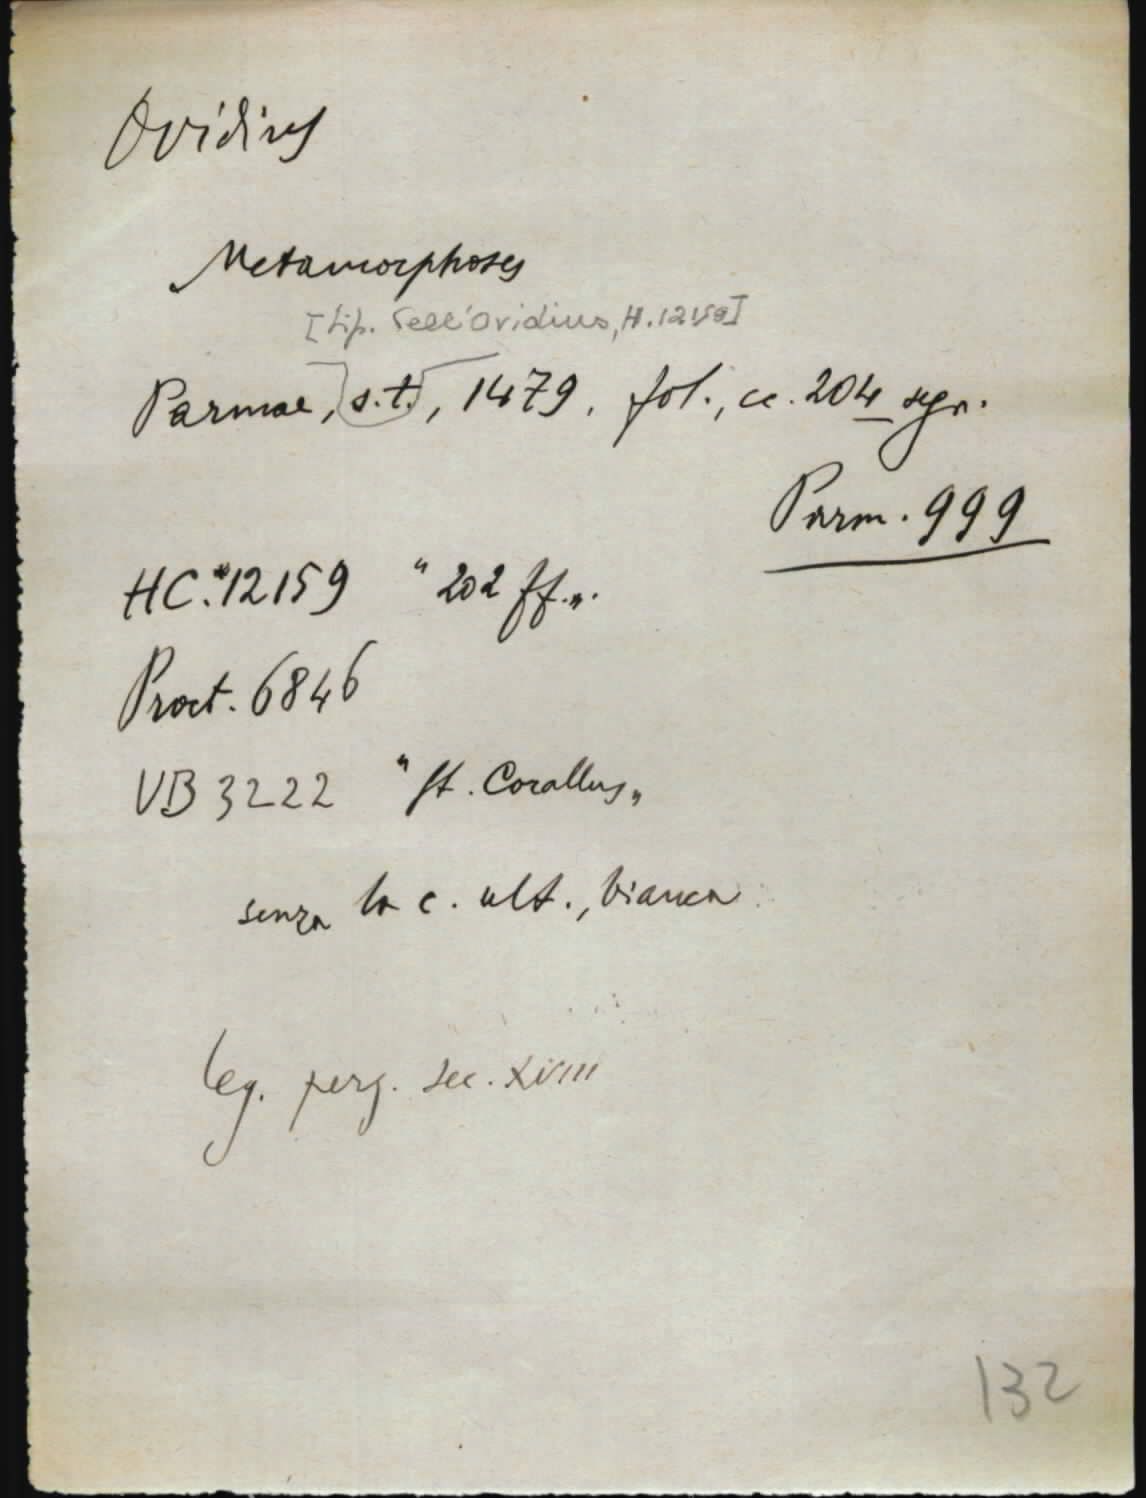 Ovidius
Metamorphoses
[tip. dell'Ovidius, H. 12159]
Parmae, s.t., 1479. fol., cc. 204 segn.
Parm. 999
HC.*12159 " 202 ff.".
Proct. 6846
VB 3222 " St. Corallus "
senza la c. ult., bianca
leg. perg. sec. XVIII
132